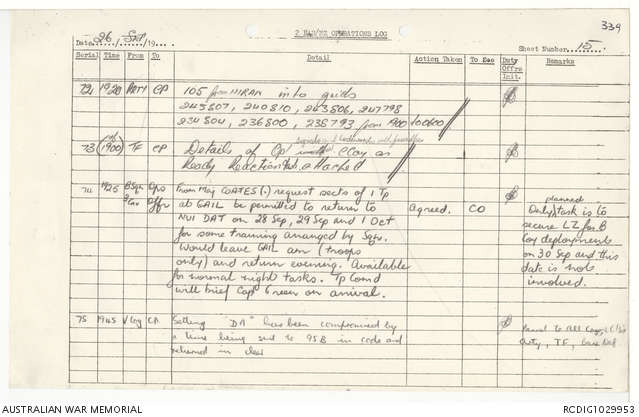 339
2 RAR/NZ OPERATIONS LOG
Date 26 / Sep /19
Sheet Number 15.
Serial Time From To Detail Action Taken To See Duty Offrs Init. Remarks
72 1920 Arty CP 105 from HIRAM into grids
243807, 240810, 243806, 247798
234804, 236800, 238793 from 1900
73 1900 TF CP Details of Op Coy as
Ready Reaction attached
74 1925 B Sqn Ops From Maj COATES (.) request sects of 1 Tp
Offr at GAIL be permitted to return to Agreed. CO planned
NUI DAT on 28 Sep, 29 Sep and 1 Oct Only task is to
for some training arranged by Sqn. secure LZ for B
Would leave GAIL am (troops Coy deployments
only) and return evening. Available on 30 Sep and this
for normal night tasks. Tp Comd date is not
will brief Capt Greer on arrival. involved.
75 1945 V Coy CP Setting "DA" has been compromised by
a time being sent to 95B in code and
returned in clear
duty, TF,
AUSTRALIAN WAR MEMORIAL
RCDIG1029953